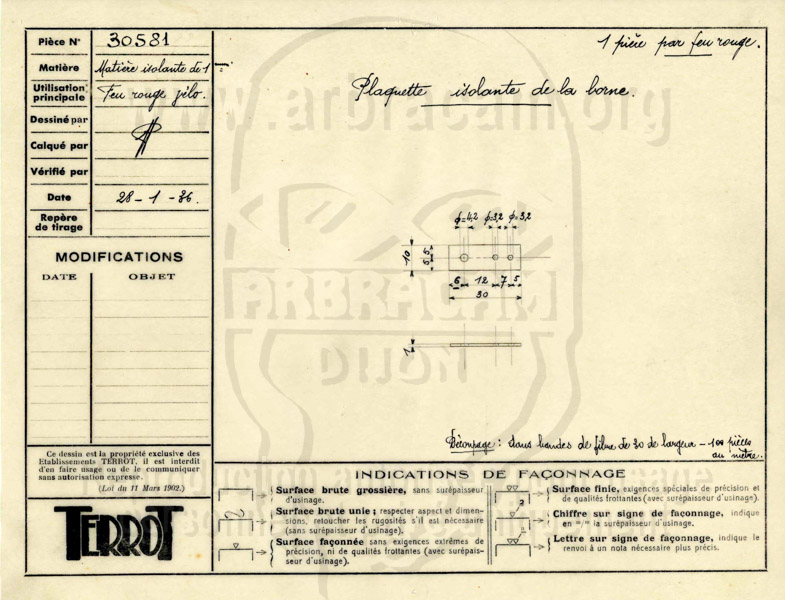 Pièce N° 30581
1 pièce par feu rouge.
Matière Matière isolante de 1 m/m
Utilisation principale Feu rouge vélo.
Plaquette isolante de la borne.
Dessiné par
Calqué par
Vérifié par
Date 28-1-36.
Repère de tirage
MODIFICATIONS
DATE OBJET
ϕ=4,2 ϕ=3,2 ϕ=3,2
10 5 5
6 12 7 5
30
1
Découpage : dans bandes de fibre de 30 de largeur - 100 pièces
au mètre.
Ce dessin est la propriété exclusive des
Etablissements TERROT, il est interdit
d'en faire usage ou de le communiquer
sans autorisation expresse.
(Loi du 11 Mars 1902.)
TERROT
INDICATIONS DE FAÇONNAGE
Surface brute grossière, sans surépaisseur
d'usinage.
Surface brute unie ; respecter aspect et dimen-
sions, retoucher les rugosités s'il est nécessaire
(sans surépaisseur d'usinage).
Surface façonnée sans exigences extrêmes de
précision, ni de qualités frottantes (avec surépais-
seur d'usinage).
Surface finie, exigences spéciales de précision et
de qualités frottantes (avec surépaisseur d'usinage).
2
Chiffre sur signe de façonnage, indique
en m/m la surépaisseur d'usinage.
Lettre sur signe de façonnage, indique le
renvoi à un nota nécessaire plus précis.
www.arbracam.org
ARBRACAM
DIJON